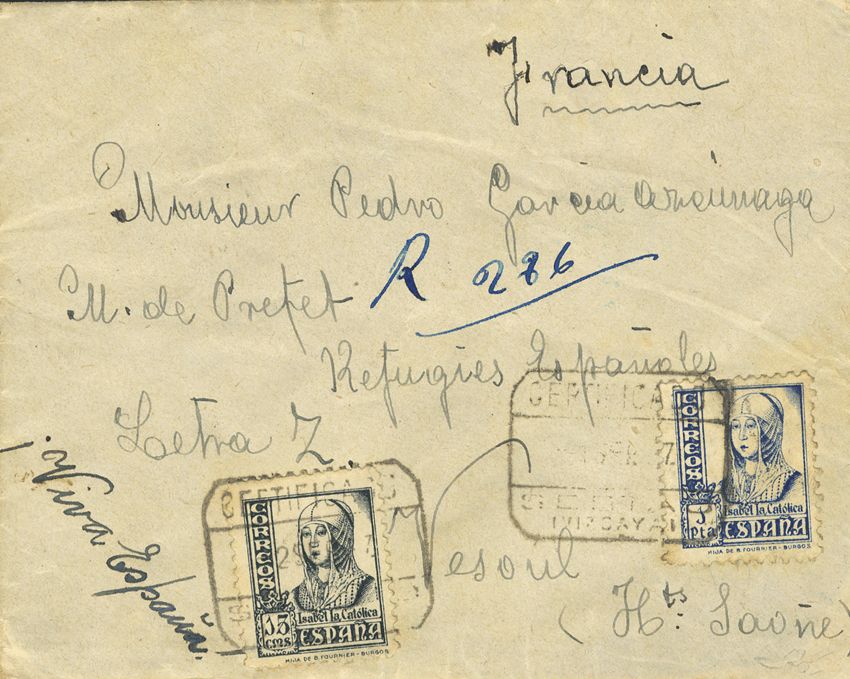 Francia
Monsieur Pedro Garcia
M. de Prefet R 286
Refugies Españoles
Letra Z.
Vesoul
(Hts. Saoñe)
¡Viva España!
CERTIFICADO
CORREOS
15 cms
Isabel la Católica
ESPAÑA
HIJA DE B. FOURNIER - BURGOS
CERTIFICADO
(VIZCAYA)
CORREOS
1 pta
Isabel la Católica
ESPAÑA
HIJA DE B. FOURNIER - BURGOS